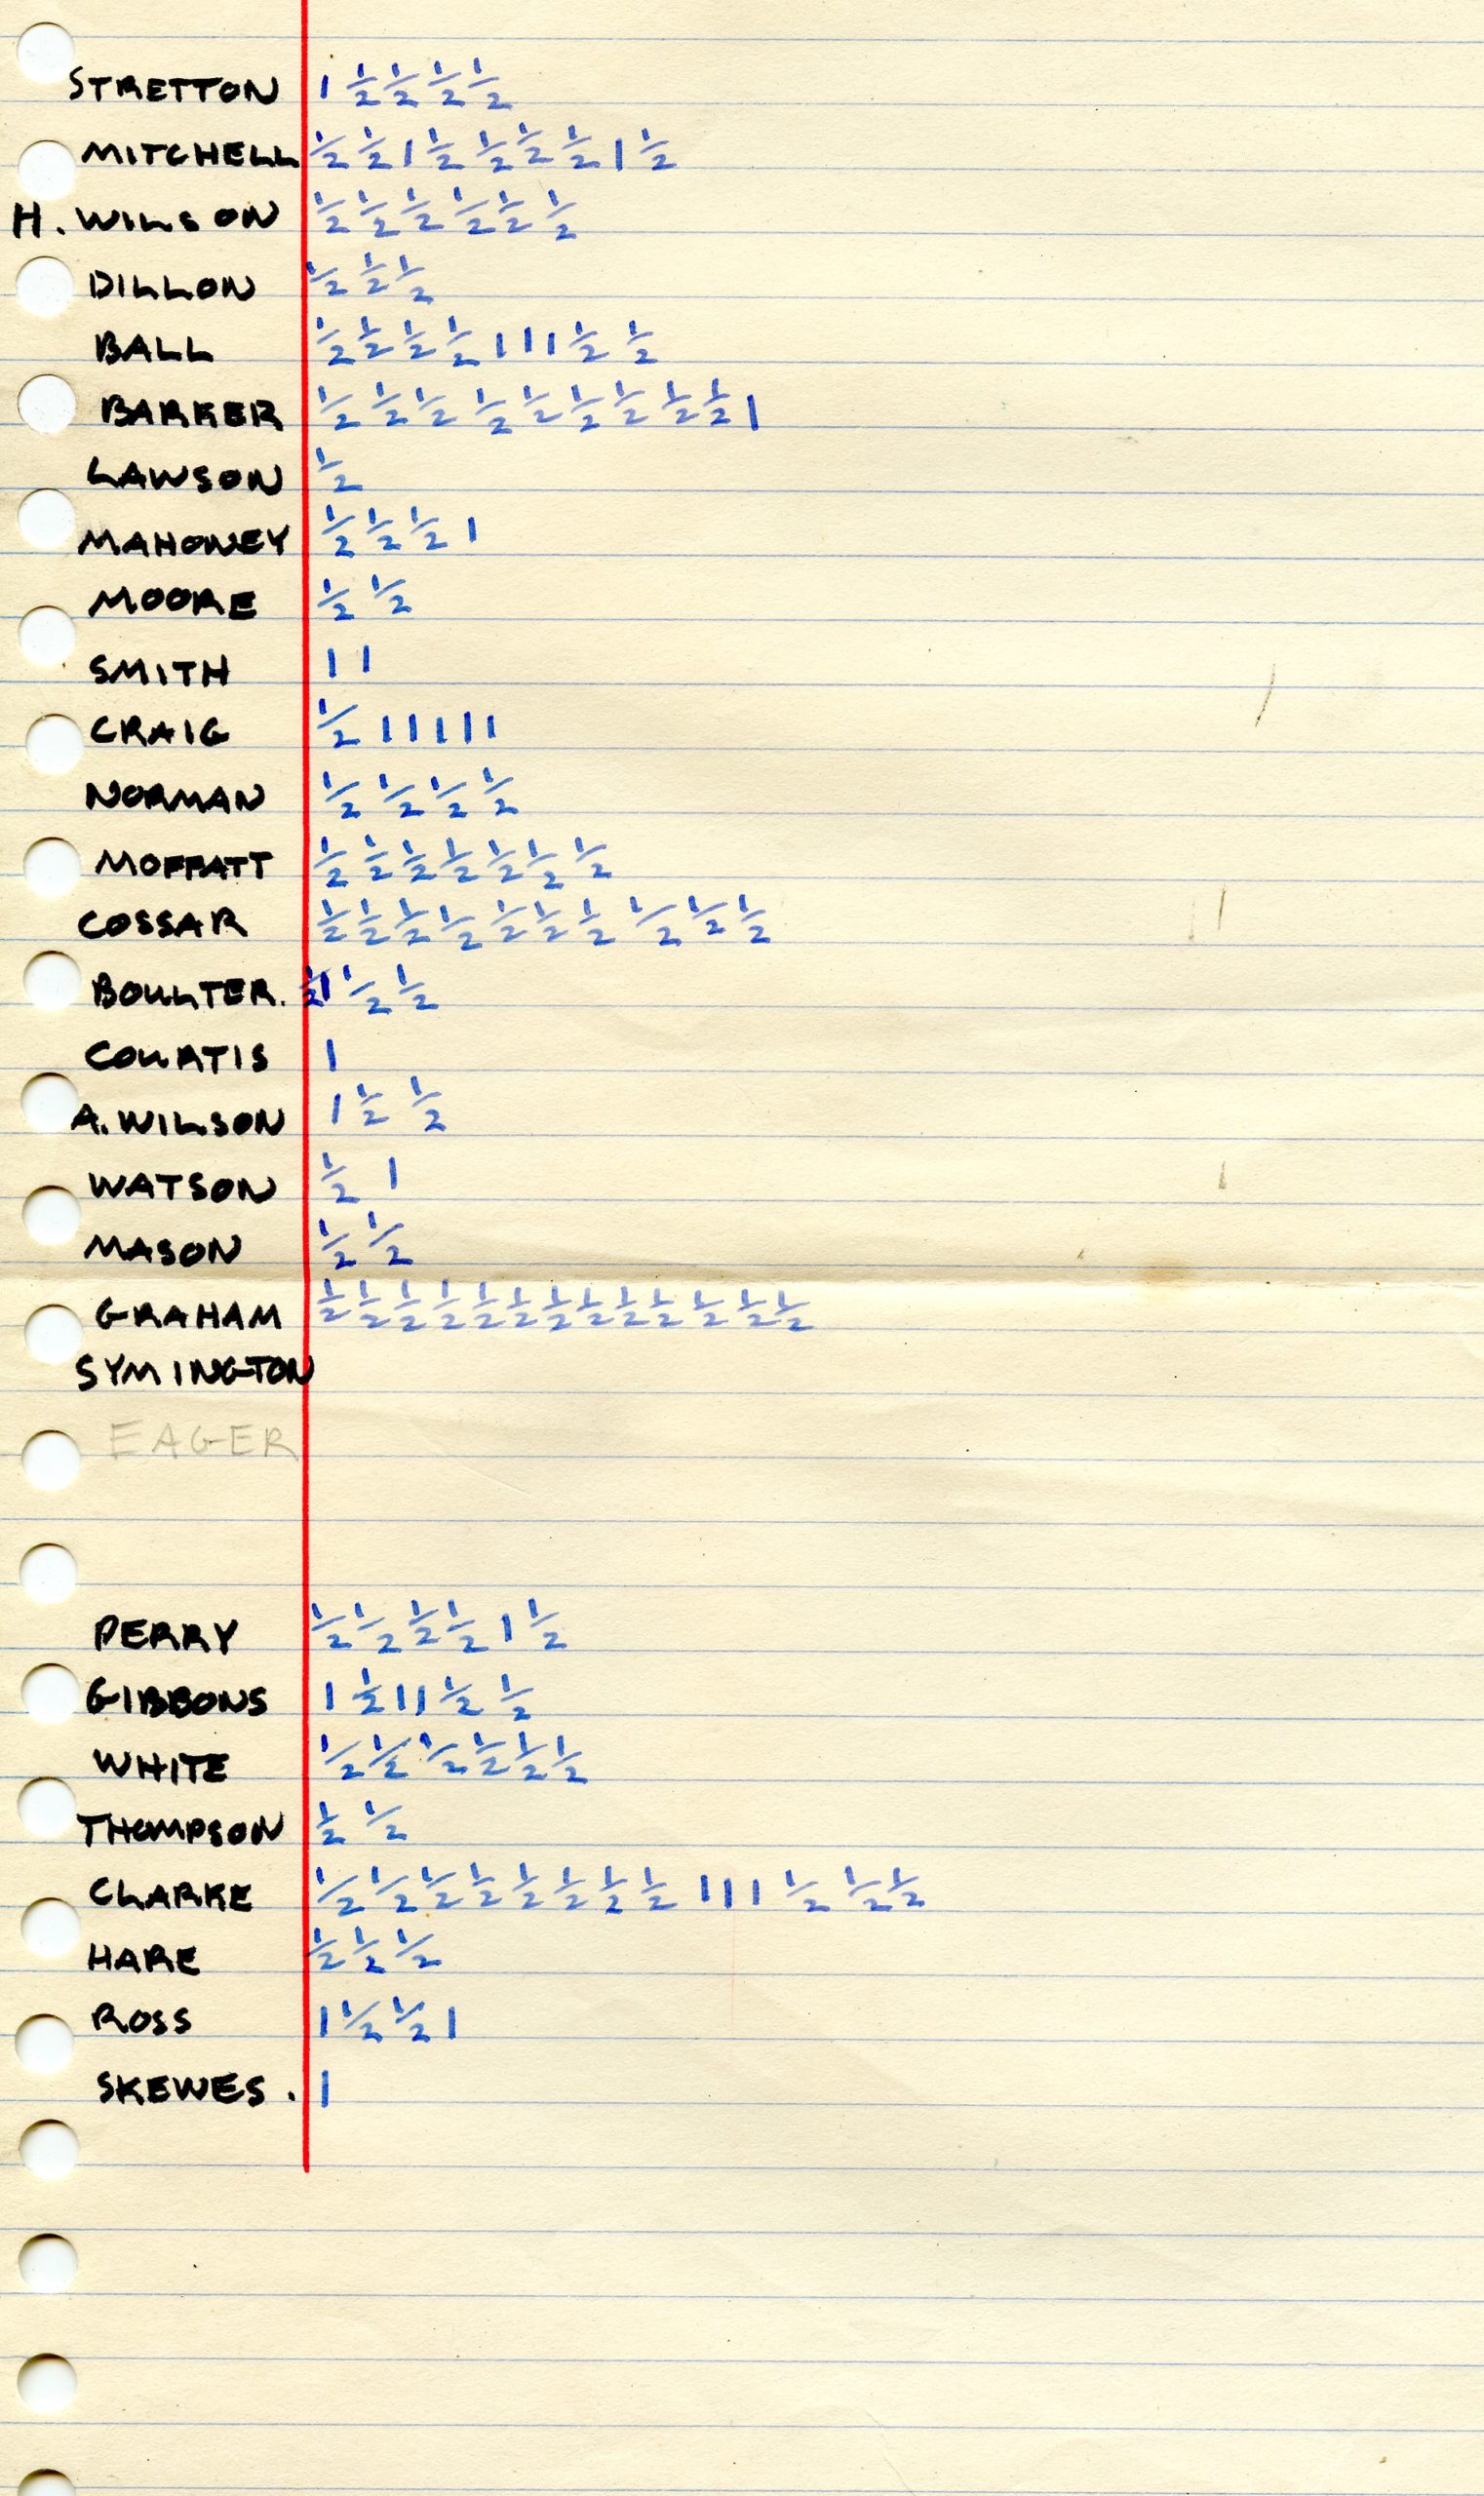 STRETTON 1 1/2 1/2 1/2 1/2
MITCHELL 1/2 1/2 1 1/2 1/2 1/2 1/2 1 1/2
H. WILSON 1/2 1/2 1/2 1/2 1/2 1/2
DILLON 1/2 1/2 1/2
BALL 1/2 1/2 1/2 1/2 1 1 1 1/2 1/2
BARKER 1/2 1/2 1/2 1/2 1/2 1/2 1/2 1/2 1/2 1
LAWSON 1/2
MAHONEY 1/2 1/2 1/2 1
MOORE 1/2 1/2
SMITH 1 1
CRAIG 1/2 1 1 1 1 1
NORMAN 1/2 1/2 1/2 1/2
MOFFATT 1/2 1/2 1/2 1/2 1/2 1/2 1/2
COSSAR 1/2 1/2 1/2 1/2 1/2 1/2 1/2 1/2 1/2 1/2
BOULTER. 1/2 1 1/2 1/2
COURTIS 1
A. WILSON 1 1/2 1/2
WATSON 1/2 1
MASON 1/2 1/2
GRAHAM 1/2 1/2 1/2 1/2 1/2 1/2 1/2 1/2 1/2 1/2 1/2 1/2 1/2
SYMINGTON
EAGER
PERRY 1/2 1/2 1/2 1/2 1 1/2
GIBBONS 1 1/2 1 1 1/2 1/2
WHITE 1/2 1/2 1/2 1/2 1/2 1/2
THOMPSON 1/2 1/2
CLARKE 1/2 1/2 1/2 1/2 1/2 1/2 1/2 1/2 1 1 1 1/2 1/2 1/2
HARE 1/2 1/2 1/2
ROSS 1 1/2 1/2 1
SKEWES. 1